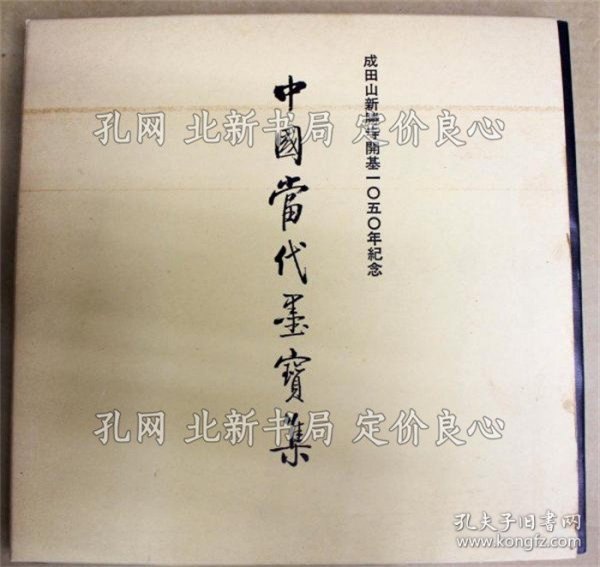 成田山新勝寺開基一〇五〇年紀念
中國當代墨寶集
孔网 北新书局 定价良心
孔网 北新书局 定价良心
孔网 北新书局 定价良心
孔夫子旧书网
www.kongfz.com